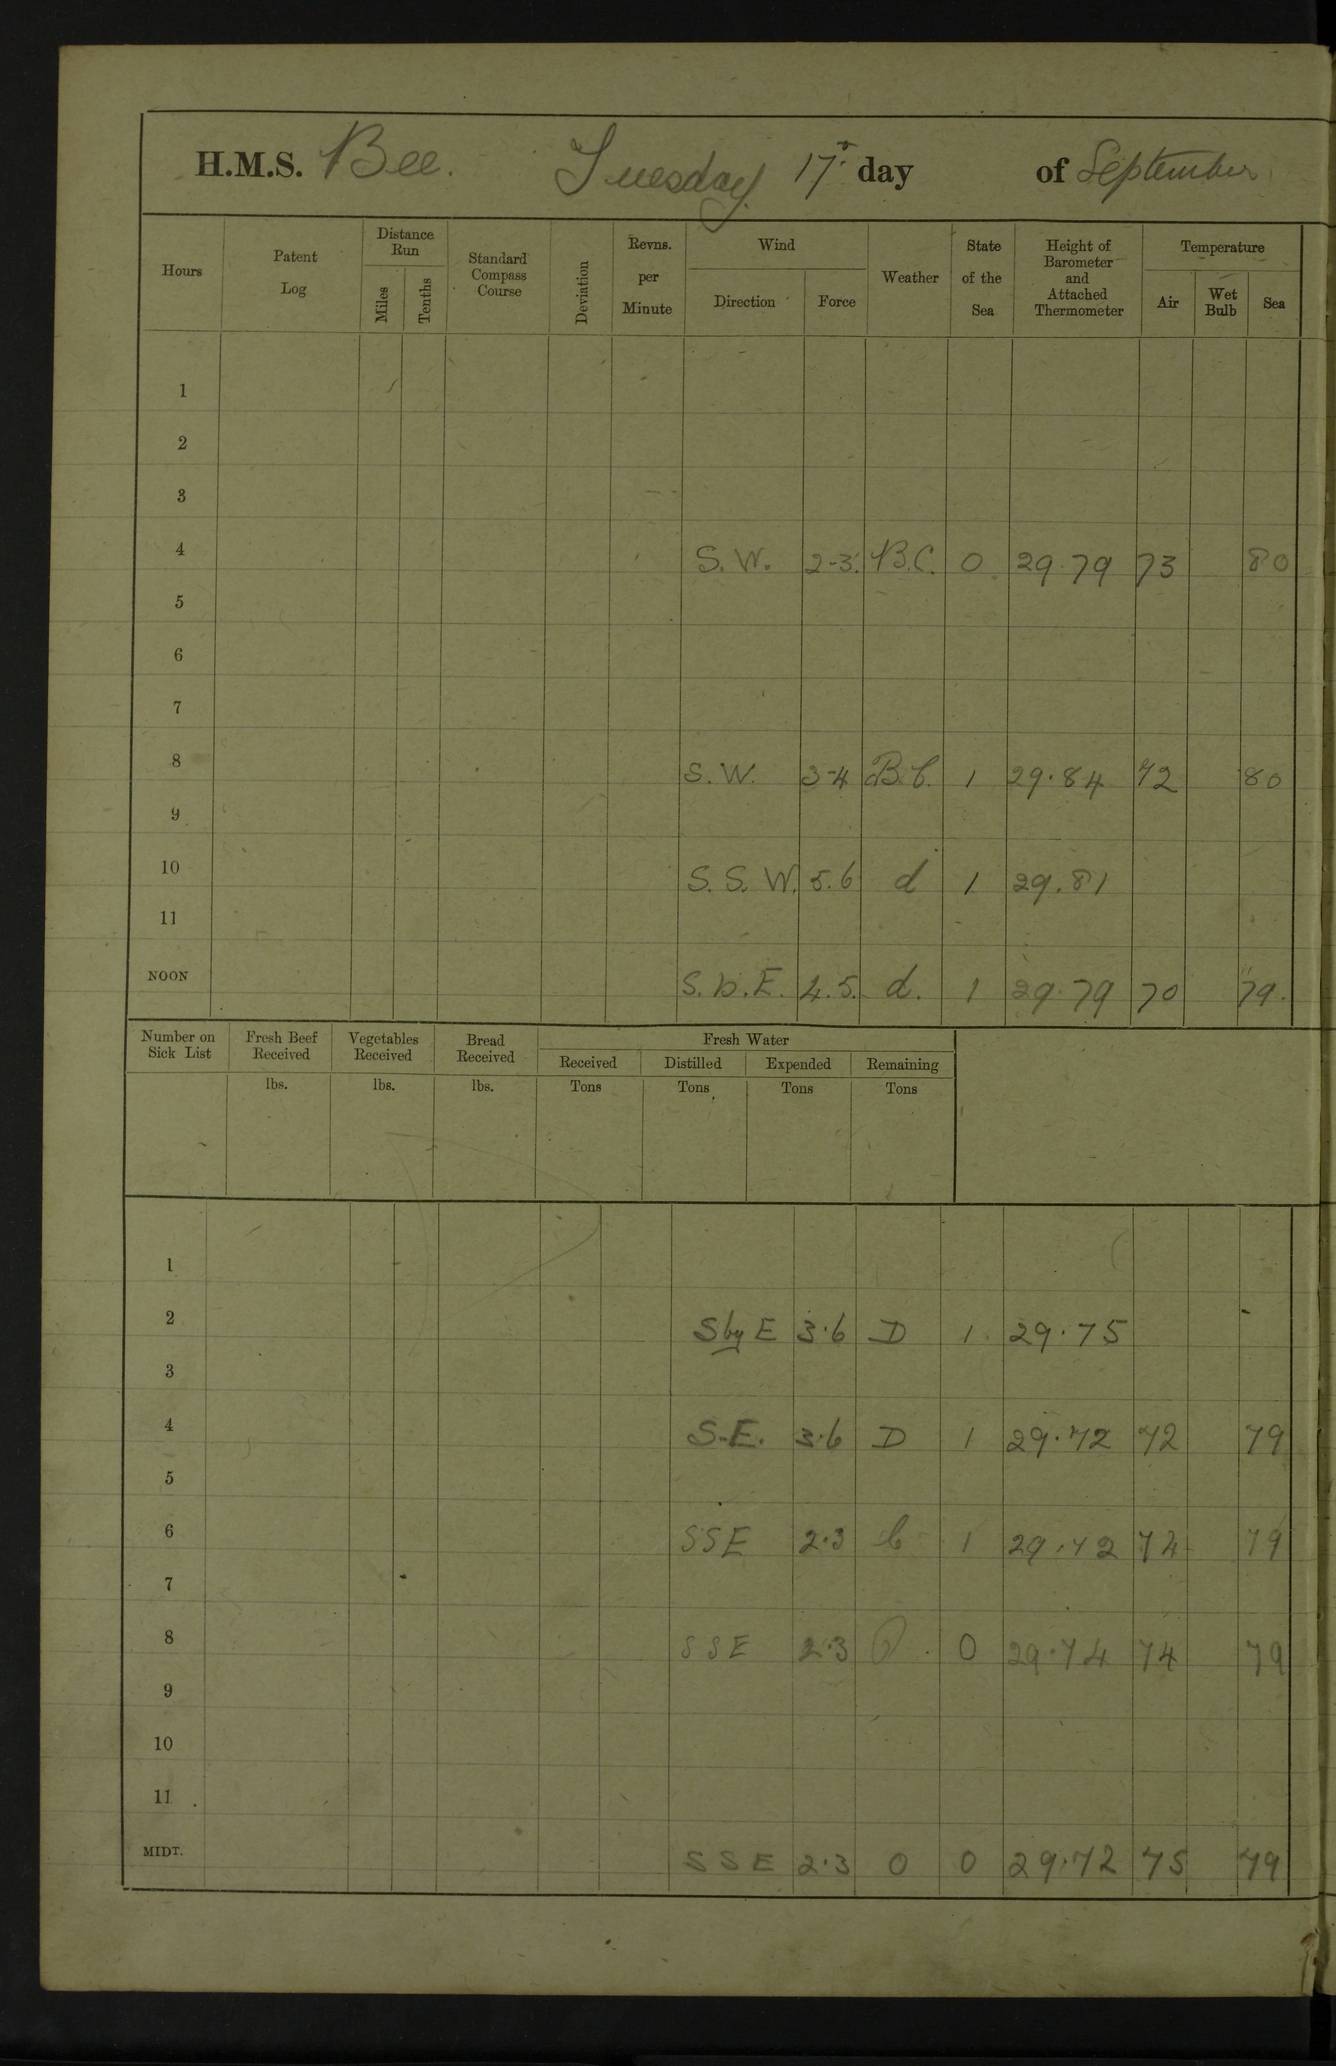 H.M.S. Bee. Tuesday 17th day of September
Hours Patent Log Distance Run Miles Tenths Standard Compass Course Deviation Revns. per Minute Wind Direction Force Weather State of the Sea Height of Barometer and Attached Thermometer Temperature Air Wet Bulb Sea
1
2
3
4 S.W. 2-3. B.C. 0 29.79 73 80
5
6
7
8 S.W. 3-4 B.C. 1 29.84 72 80
9
10 S.S.W. 5.6 d 1 29.81
11
NOON S.b.E. 4.5. d. 1 29.79 70 79.
Number on Sick List Fresh Beef Received Vegetables Received Bread Received Fresh Water
Received Distilled Expended Remaining
lbs. lbs. lbs. Tons Tons Tons Tons
1
2 SbyE 3.6 D 1. 29.75
3
4 S.E. 3.6 D 1 29.72 72 79
5
6 SSE 2.3 1 29.72 74 79
7
8 SSE 2.3 0 29.74 74 79
9
10
11
MIDT. SSE 2.3 0 0 29.72 75 79